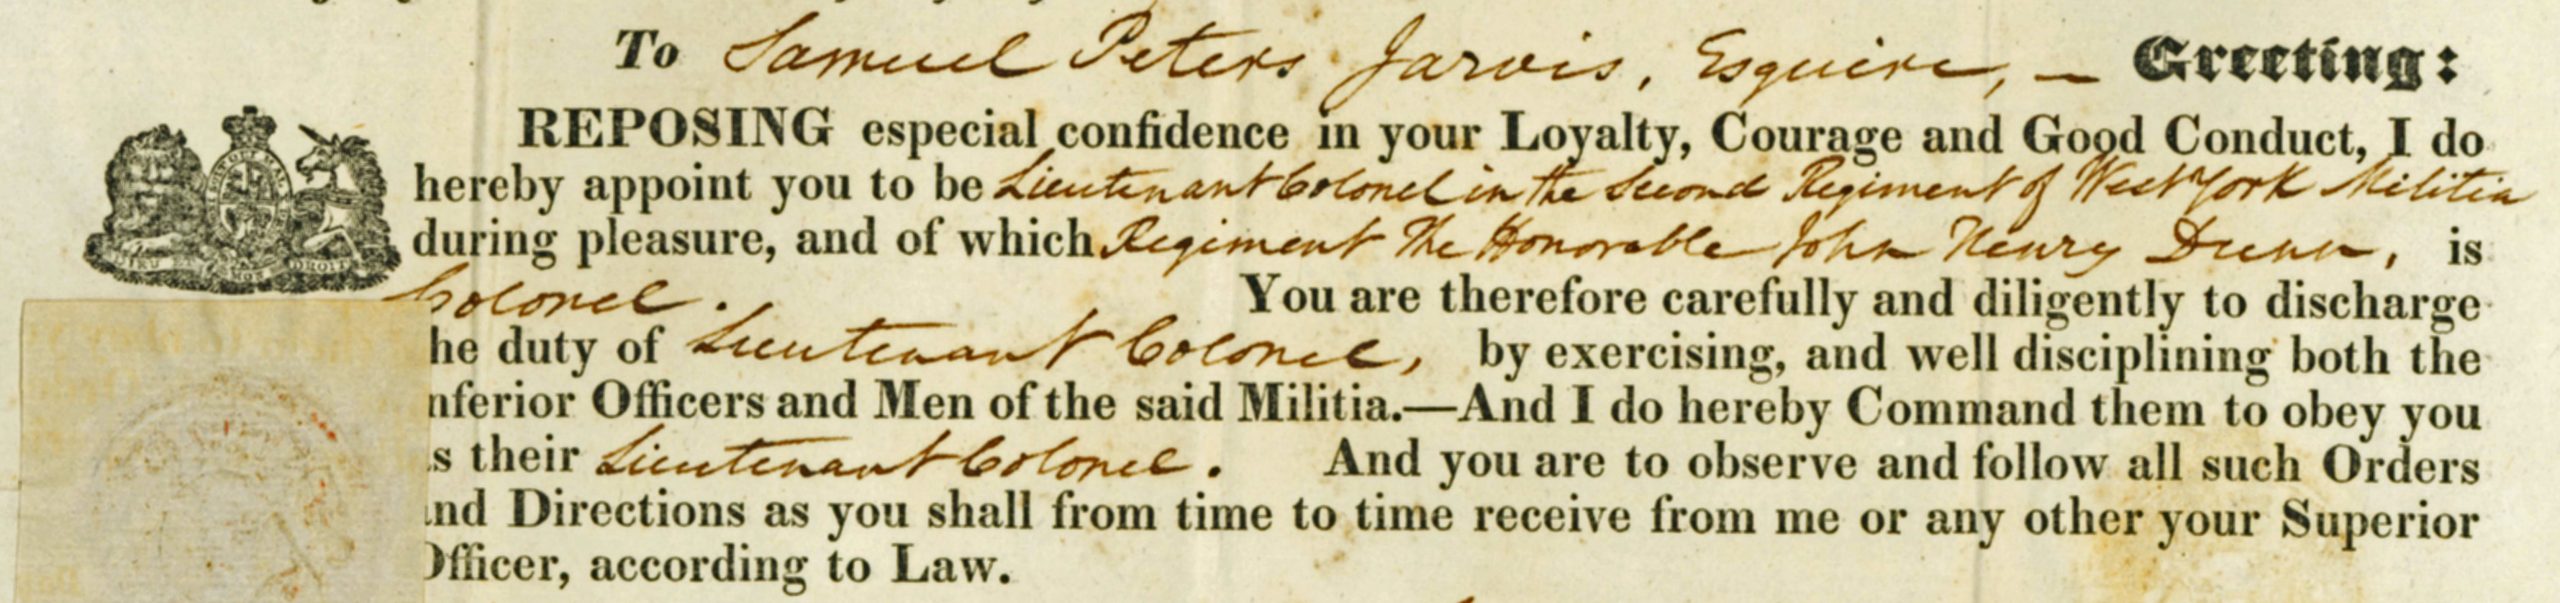 To Samuel Peters Jarvis, Esquire, — Greeting:
REPOSING especial confidence in your Loyalty, Courage and Good Conduct, I do
hereby appoint you to be Lieutenant Colonel in the Second Regiment of West York Militia
during pleasure, and of which Regiment The Honorable John Henry Dunn, is
Colonel. You are therefore carefully and diligently to discharge
he duty of Lieutenant Colonel, by exercising, and well disciplining both the
nferior Officers and Men of the said Militia.—And I do hereby Command them to obey you
s their Lieutenant Colonel. And you are to observe and follow all such Orders
nd Directions as you shall from time to time receive from me or any other your Superior
Officer, according to Law.